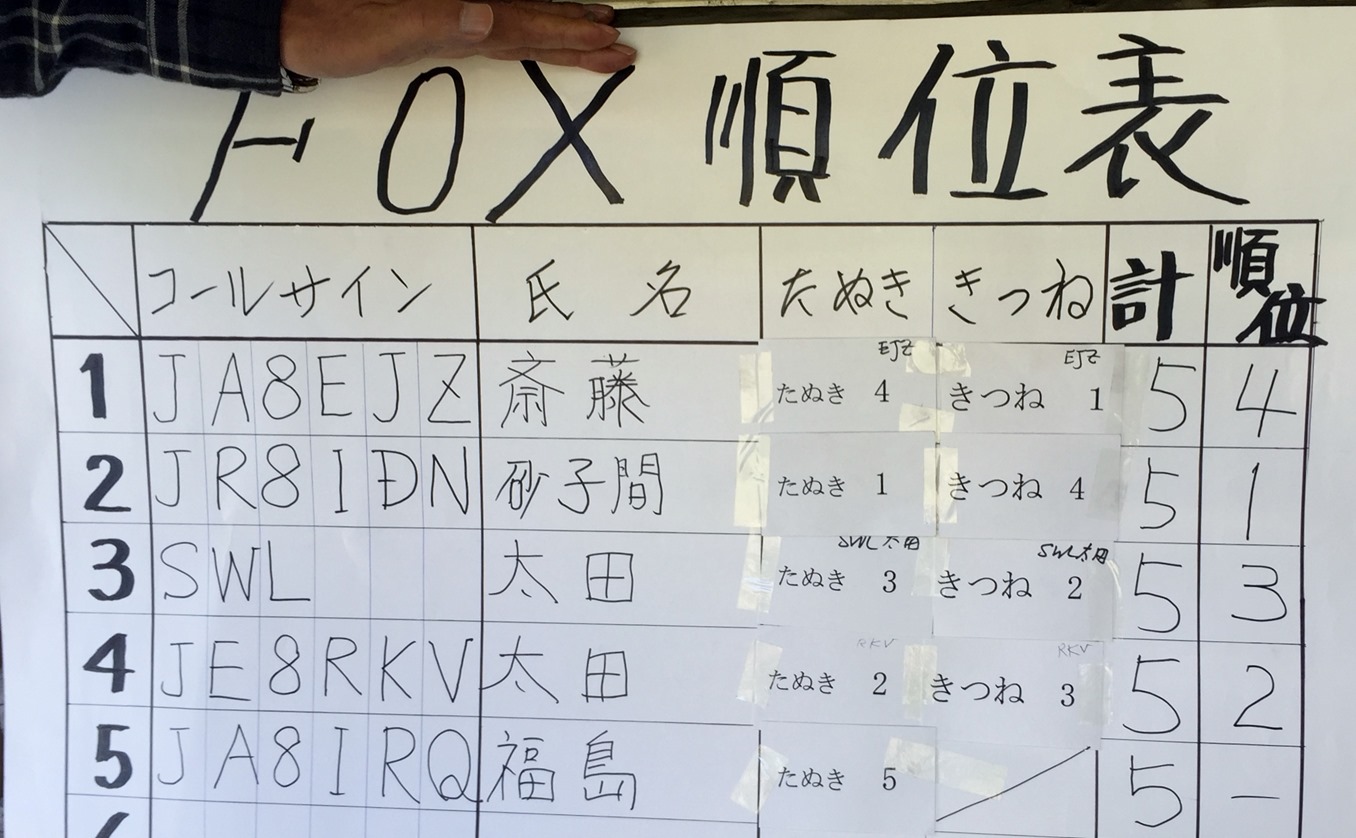 FOX 順位表
コールサイン 氏名 たぬき きつね 計 順位
1 JA8EJZ 斎藤 たぬき 4 EJZ きつね 1 EJZ 5 4
2 JR8IDN 砂子間 たぬき 1 きつね 4 5 1
3 SWL 太田 たぬき 3 SWL太田 きつね 2 SWL太田 5 3
4 JE8RKV 太田 たぬき 2 RKV きつね 3 RKV 5 2
5 JA8IRQ 福島 たぬき 5 5 —